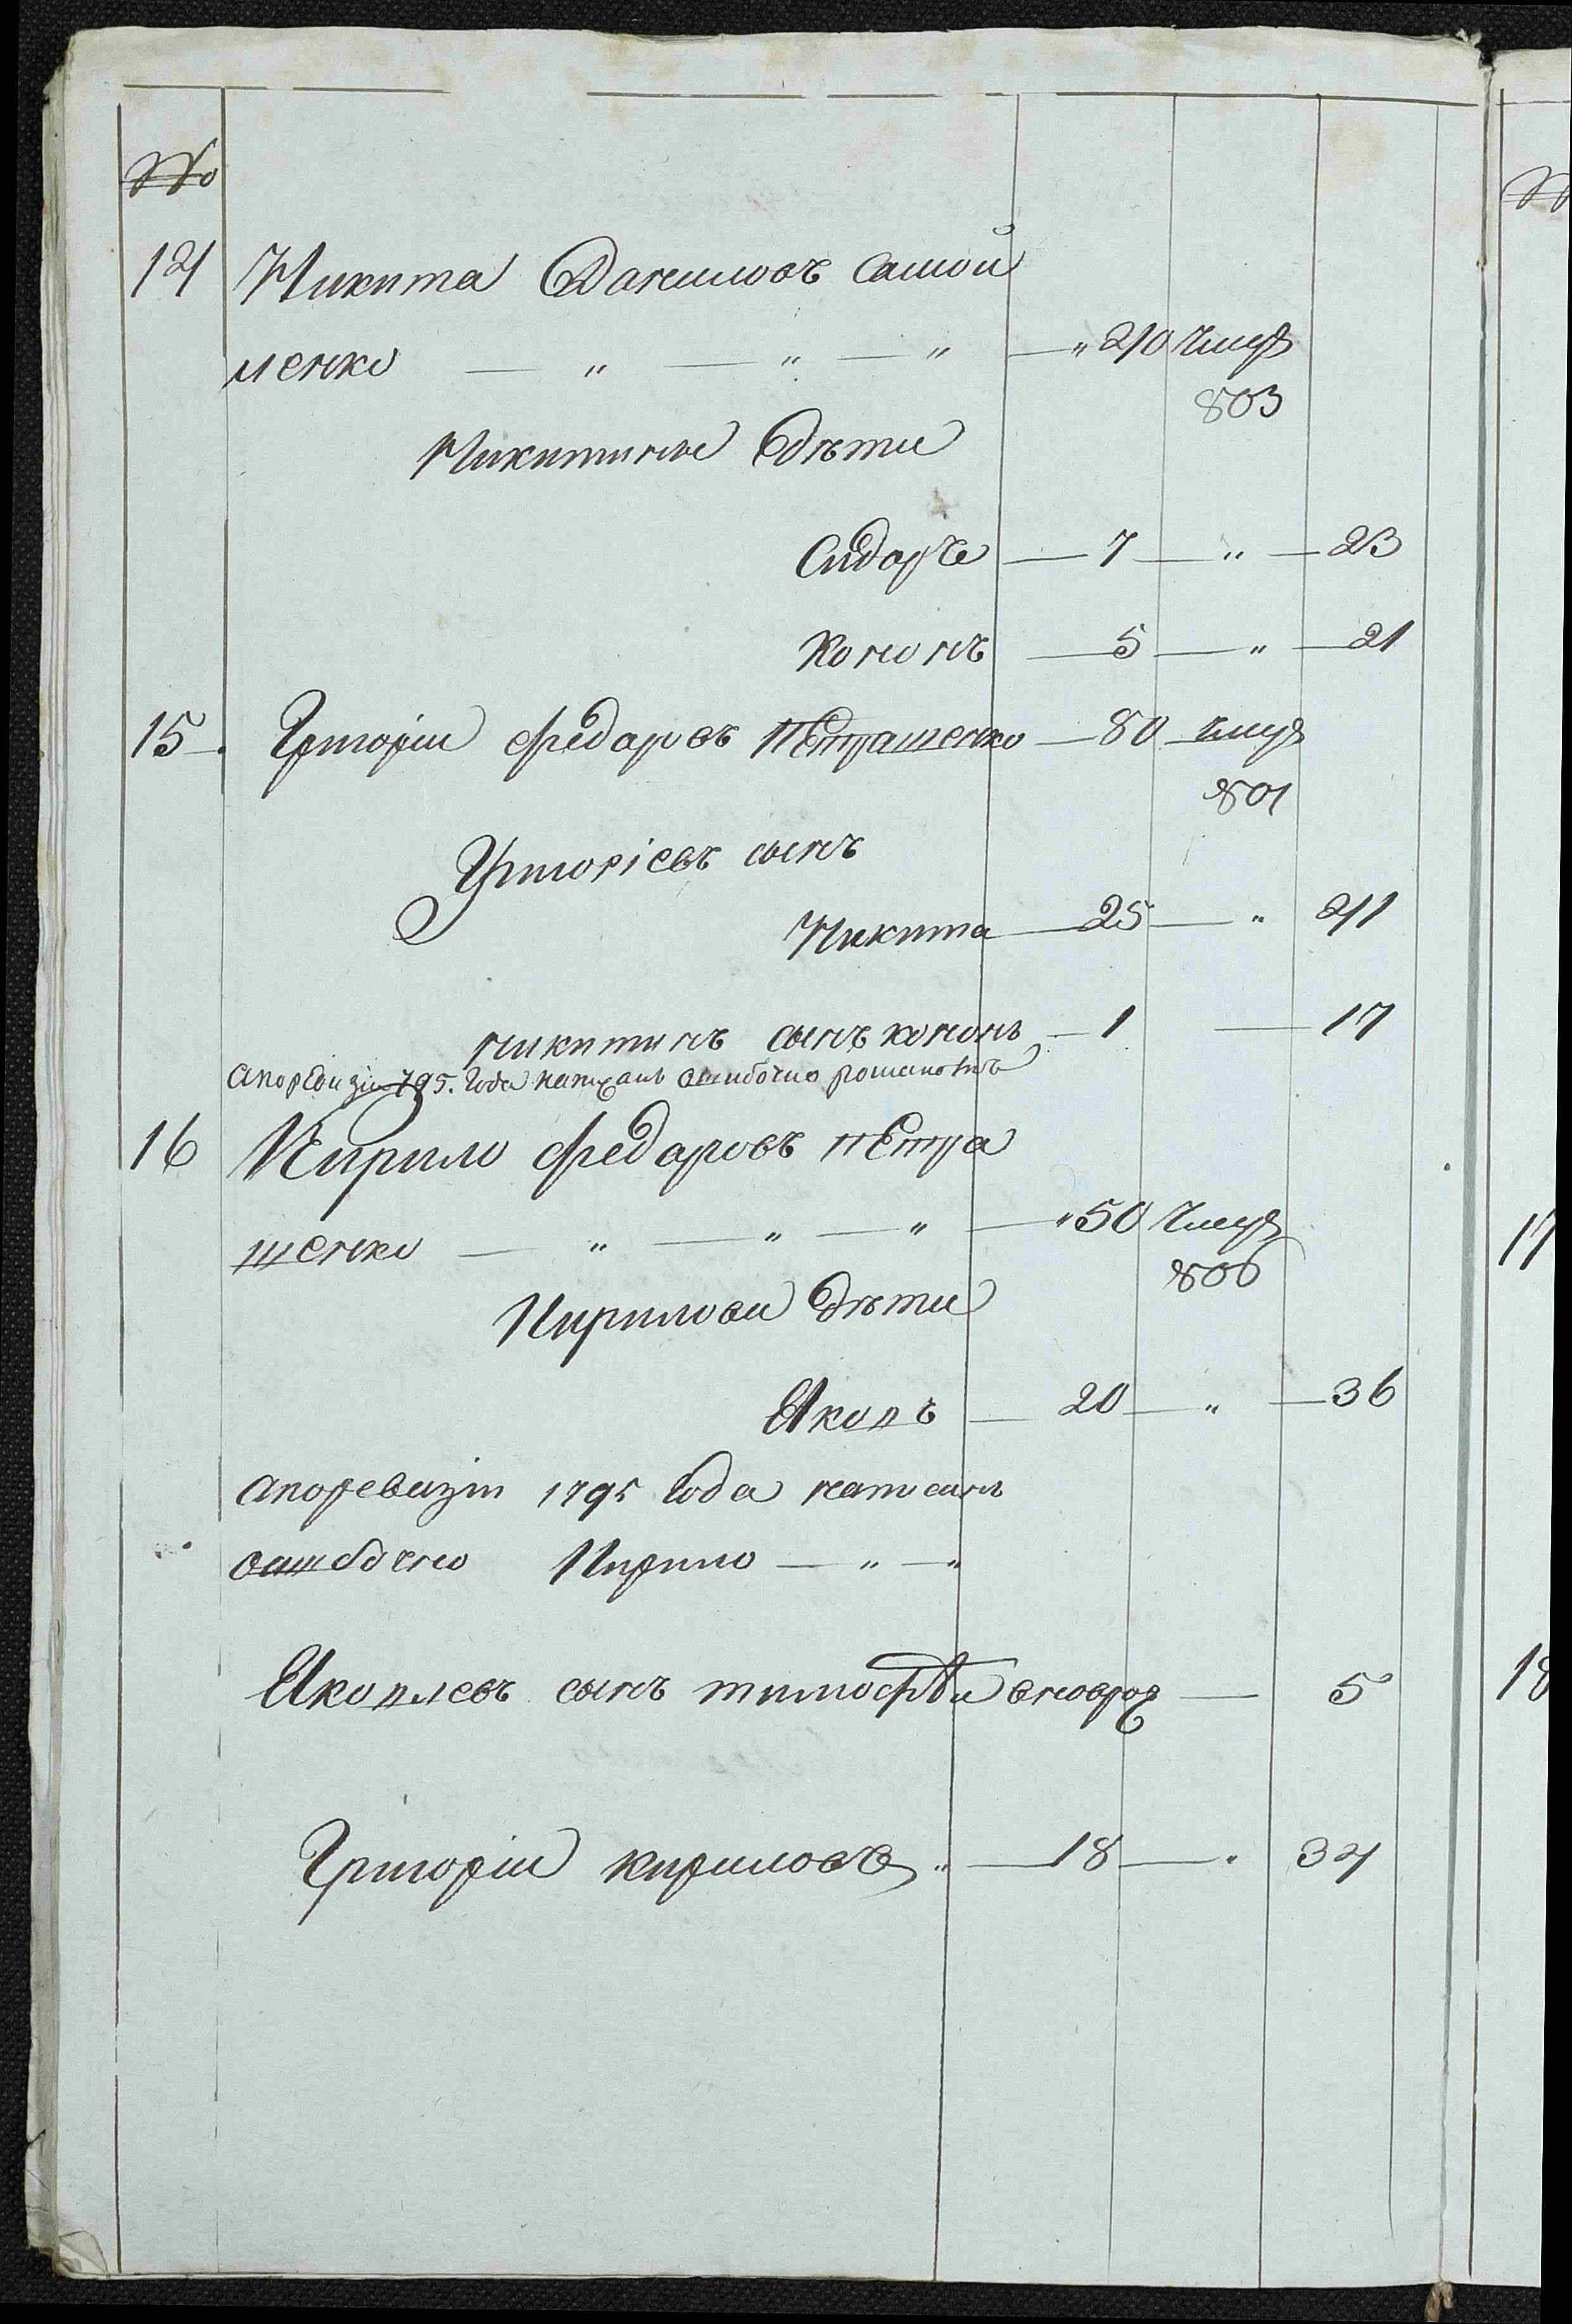 №
14 Никита Даниловъ Самой
ленко — " — " — " — " 40 умре
803
Никитины дѣти
Сидоръ — 7 — " — 23
Кононъ — 5 — " — 21
15. Григорій Федаровъ Петрашенко — 80 умре
801
Григоріевъ сынъ
Никита — 25 — " 41
никитинъ сынъ кононъ — 1 — 17
апоревизіи 795. года написанъ ошибочно романомъ
16 Кирило Федаровъ Петра
шенко — " — " — " — " 50 умре
806
Кирилови дѣти
Яковъ — 20 — " — 36
апоревизіи 1795 года написанъ
ошибочно Кирило — " — "
Яковлевъ сынъ тимофѣй вноврож — 5
Григорій кириловъ " — 18 — " 34
№
17
18